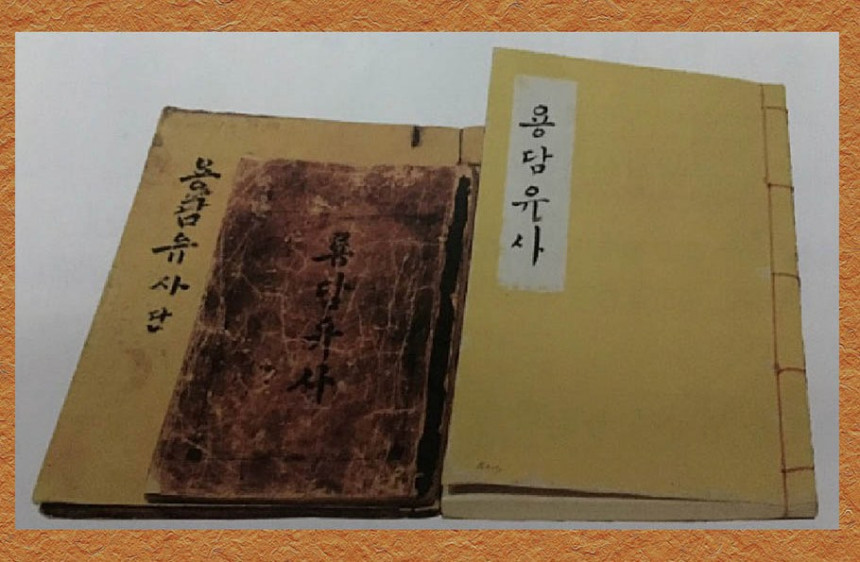 용담유사
룡담유사
용담유사 단